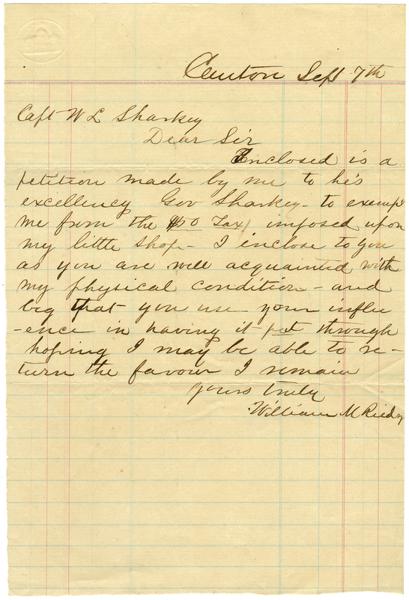 Canton Sept 7th
Capt W L Sharkey
Dear Sir
Enclosed is a
petition made by me to he's
excellency Gov Sharkey - to exempt
me from the $50 Tax imposed upon
my little shop - I enclose to you
as you are well acquainted with
my physical condition - and
beg that you use your influ
-ence in having it put through
hoping I may be able to re-
turn the favour I remain
Yours truly
William M